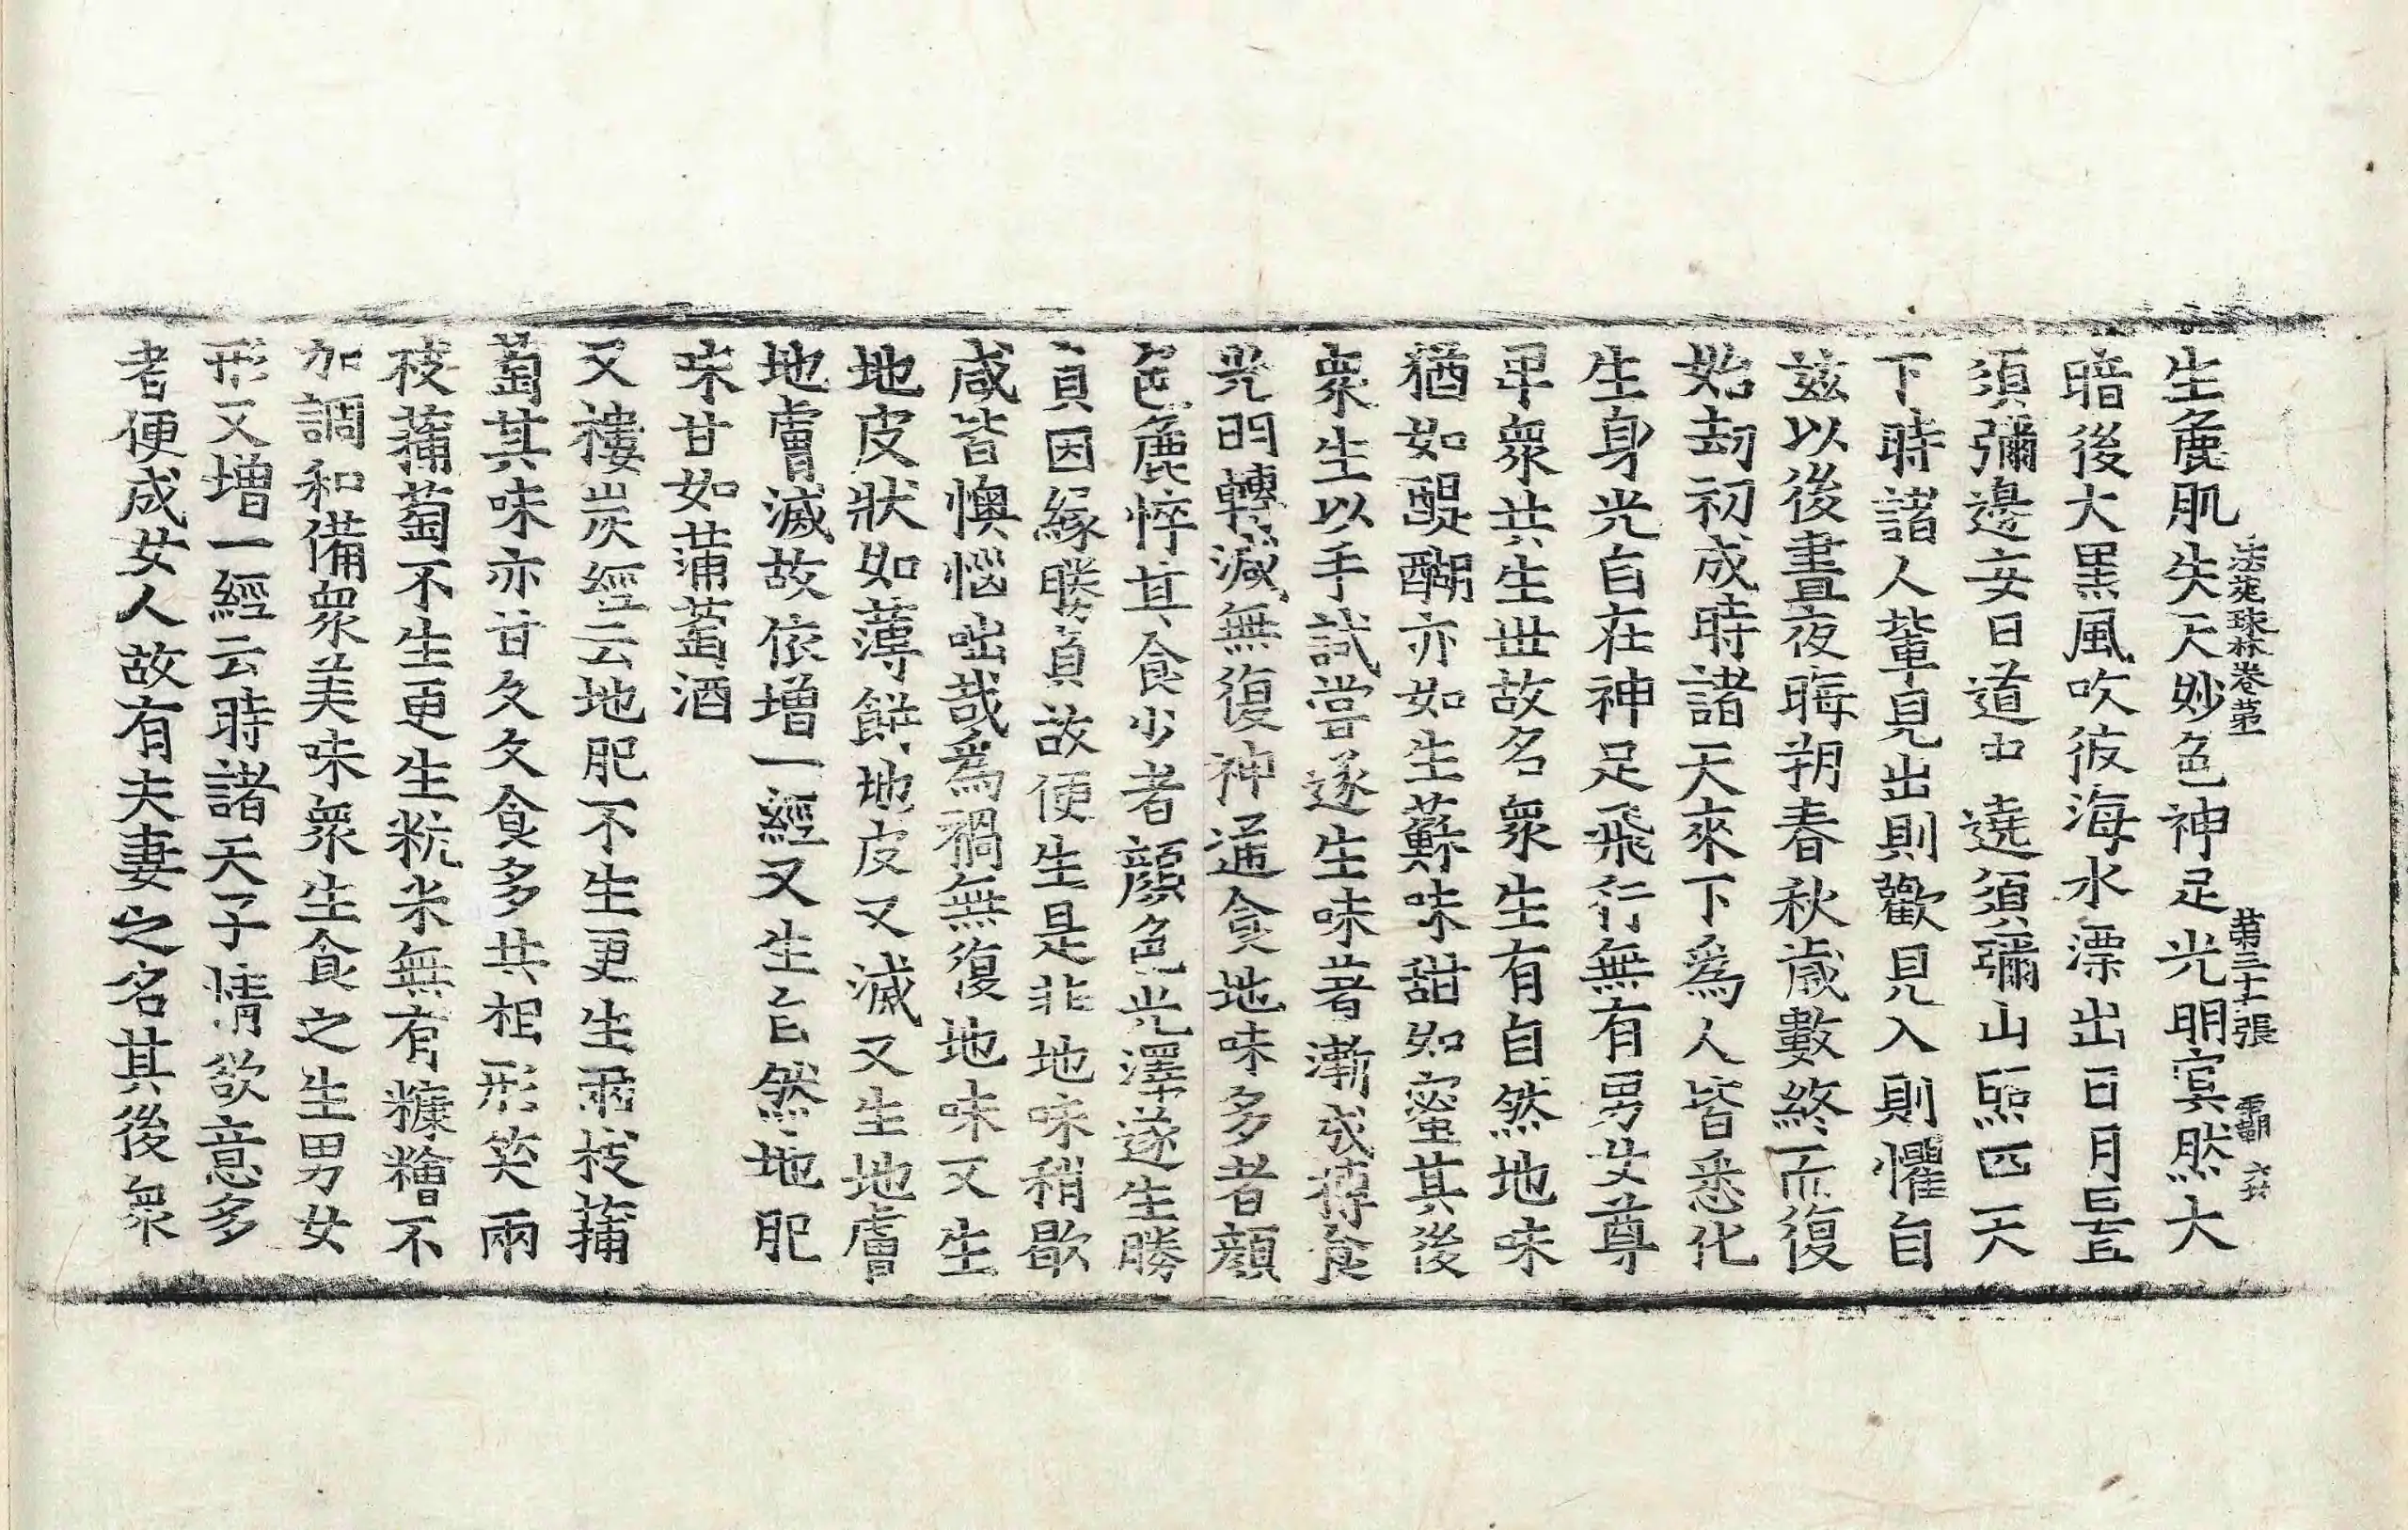 生麁肌失天妙色神足光明冥然大
法苑珠林卷苐一 苐三十一張 覇 六
暗後大黒風吹彼海水漂出日月置
須彌邊安日道中遶須彌山照四天
下時諸人輩見出則歡見入則懼自
兹以後晝夜晦朔春秋歲數終而復
始劫初成時諸天來下爲人皆悉化
生身光自在神足飛行無有男女尊
卑衆共生世故名衆生有自然地味
猶如醍醐亦如生蘇味甜如蜜其後
衆生以手試嘗遂生味著漸成摶食
光明轉滅無復神通食地味多者顔
色麁悴其食少者顔色光澤遂生勝
負因緣勝負故便生是非地味稍歇
咸皆懊惱咄哉爲禍無復地味又生
地皮狀如薄餅地皮又滅又生地膚
地膚滅故依增一經又生自然地肥
味甘如蒲萄酒
又樓炭經云地肥不生更生兩枝蒲
萄其味亦甘久久食多共相形笑兩
枝蒲萄不生更生粇米無有糠糩不
加調和備衆美味衆生食之生男女
形又增一經云時諸天子情欲意多
者便成女人故有夫妻之名其後衆